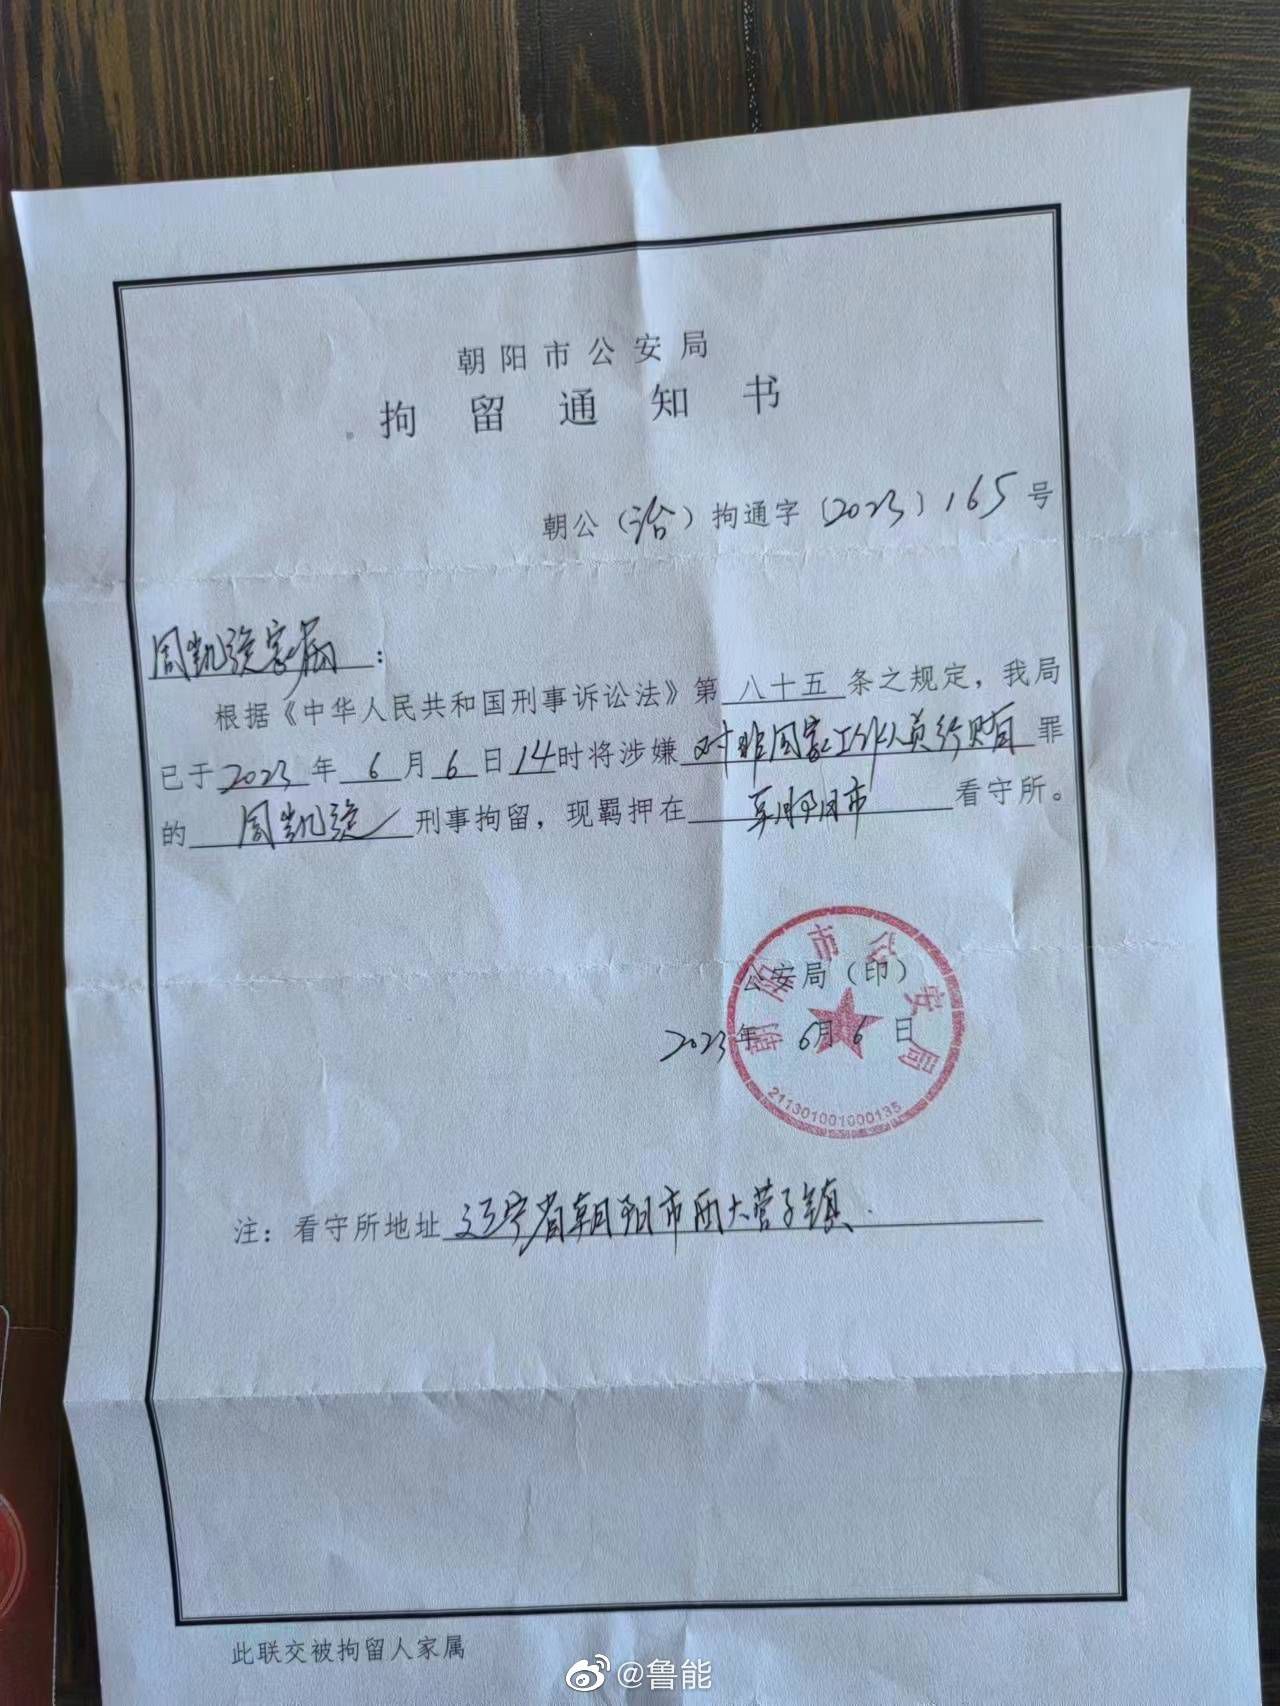 朝阳市公安局
拘留通知书
朝公(治)拘通字〔2023〕165号
周凯旋家属:
根据《中华人民共和国刑事诉讼法》第八十五条之规定,我局
已于2023年6月6日14时将涉嫌对非国家工作人员行贿罪
的周凯旋刑事拘留,现羁押在朝阳市看守所。
公安局(印)
2023年6月6日
朝阳市公安局
211301001000135
注:看守所地址辽宁省朝阳市西大营子镇.
此联交被拘留人家属
@鲁能